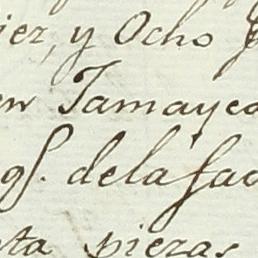 iez, y Ocho
en Jamayca
qs. dela fac
ta piezas